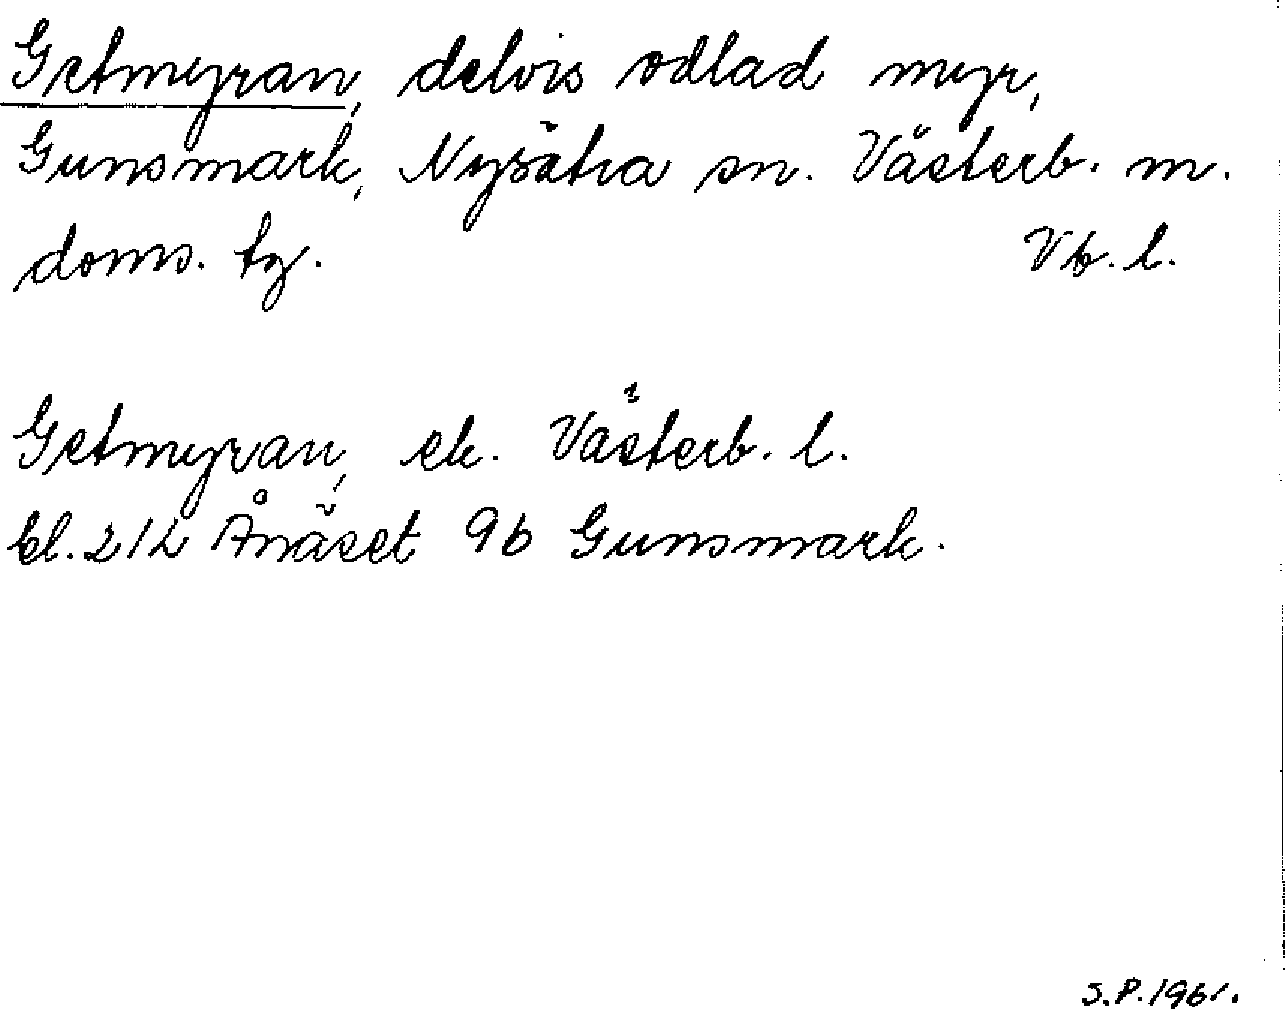 Getmyran, delvis odlad myr,
Gunsmark, Nysätra sn. Västerb. m.
doms. tg. Vb. l.
Getmyran, ek. Västerb. l.
bl. 212 Ånäset 9b Gunsmark.
S.P.1961.